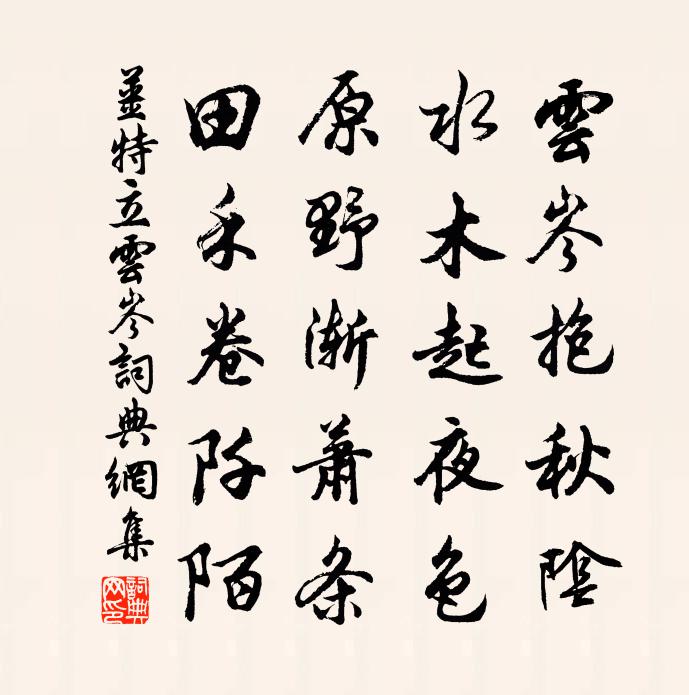 雲岑抱秋陰
水木起夜色
原野漸蕭条
田禾卷阡陌
姜特立雲岑詞典網集
詞典網印